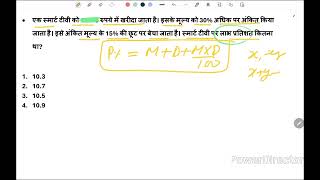 एक स्मार्ट टीवी को रुपये में खरीदा जाता है। इसके मूल्य को 30% अधिक पर अंकित किया
जाता है। इसे अंकित मूल्य के 15% की छूट पर बेचा जाता है। स्मार्ट टीवी पर लाभ प्रतिशत कितना
था?
P% = M+D+ M×D/100
x, y
x+y
1. 10.3
2. 10.7
3. 10.5
4. 10.9
PowerDirector